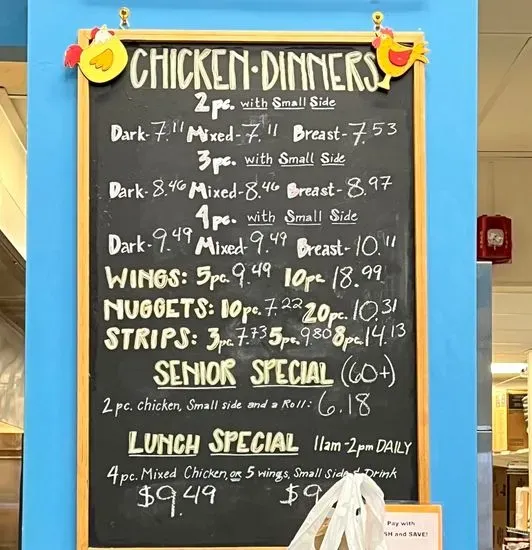 CHICKEN • DINNERS
2pc. with Small Side
Dark-7.11 Mixed-7.11 Breast-7.53
3pc. with Small Side
Dark-8.46 Mixed-8.46 Breast-8.97
4pc. with Small Side
Dark-9.49 Mixed-9.49 Breast-10.11
WINGS: 5pc. 9.49 10pc. 18.99
NUGGETS: 10pc. 7.22 20pc. 10.31
STRIPS: 3pc. 7.73 5pc. 9.80 8pc. 14.13
SENIOR SPECIAL (60+)
2pc. chicken, Small side and a Roll: 6.18
LUNCH SPECIAL 11am-2pm DAILY
4pc. Mixed Chicken, or 5 wings, Small Side Drink
$9.49 $9
Pay with
SH and SAVE!